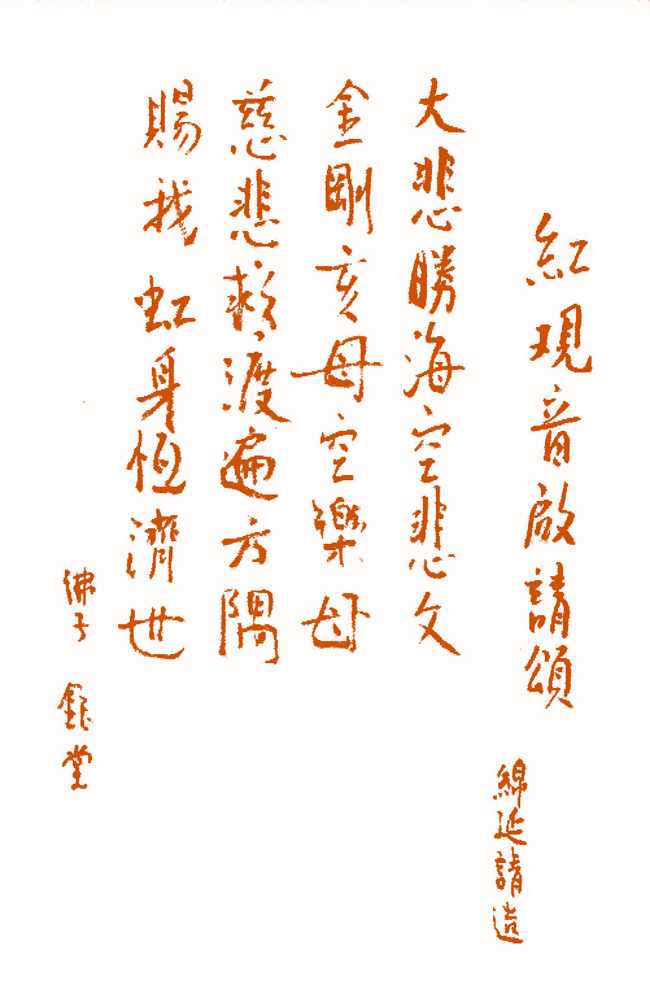 紅观音啟請頌
綿延請造
大悲勝海空悲父
金剛亥母空樂母
慈悲救渡遍方隅
賜我虹身恆濟世
佛子 鈺堂